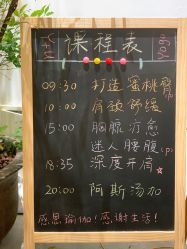 课程表
Yoga
09:30 打造蜜桃臀
10:00 肩颈舒缓
15:00 胸腺疗愈
迷人腰腹(小)
18:35 深度开肩
20:00 阿斯汤加
感恩瑜伽!感谢生活!